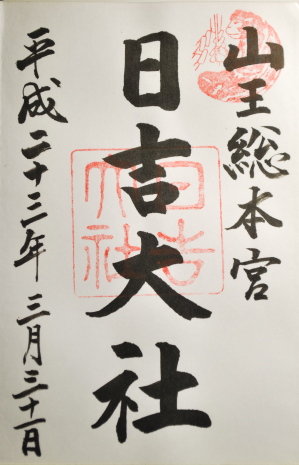 山王総本宮
日吉大社
平成二十三年 三月三十一日
日吉大社